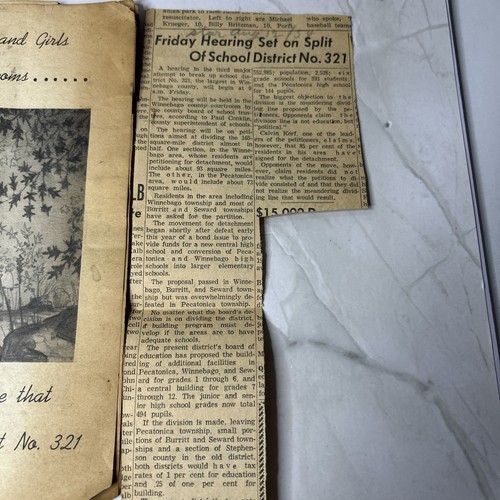 and Girls
ooms......
e that
t No. 321
resuscitator. Left to right are Michael
Krueger, 10, Billy Britzman, 10, Portl.
who spoke,
baseball team
Friday Hearing Set on Split
Of School District No. 321
A hearing in the third major
attempt to break up school dis-
trict No. 321, the largest in Win-
nebago county, will begin at 9
a.m. Friday.
The hearing will be held in the
Winnebago county courthouse by
the county board of school trus-
tees, according to Paul Conklin,
county superintendent of schools.
The hearing will be on peti-
tions aimed at dividing the 165-
square-mile district almost in
half. One section, in the Winne-
bago area, whose residents are
petitioning for detachment, would
include about 93 square miles.
The other, in the Pecatonica
area, would include about 73
square miles.
Residents in the area including
Winnebago township and most of
Burritt and Seward townships
have asked for the partition.
The movement for detachment
began shortly after defeat early
this year of a bond issue to pro-
vide funds for a new central high
school and conversion of Peca-
tonica and Winnebago high
schools into larger elementary
schools.
The proposal passed in Winne-
bago, Burritt, and Seward town-
ship but was overwhelmingly de-
feated in Pecatonica township.
No matter what the board's de-
cision is on dividing the district,
a building program must de-
velop if the areas are to have
adequate schools.
The present district's board of
education has proposed the build-
ing of additional facilities in
Pecatonica, Winnebago, and Sew-
ard for grades 1 through 6, and
a central building for grades 7
through 12. The junior and sen-
ior high school grades now total
494 pupils.
If the division is made, leaving
Pecatonica township, small por-
tions of Burritt and Seward town-
ships and a section of Stephen-
son county in the old district,
both districts would have tax
rates of 1 per cent for education
and .25 of one per cent for
building.
population, 2,328; six
grade schools for 293 students;
and the Pecatonica high school
for 114 pupils.
The biggest objection to the
division is the meandering divid-
ing line proposed by the pe-
titioners. Opponents claim the
division line is not education, but
"political."
Calvin Kierf, one of the lead-
ers of the petitioners, claims,
however, that 85 per cent of the
residents in his area have
signed for the detachment.
Opponents of the move, how-
ever, claim residents did not
realize what the petitions to di-
vide consisted of and that they did
not realize the meandering divid-
ing line that would result.
$15,000